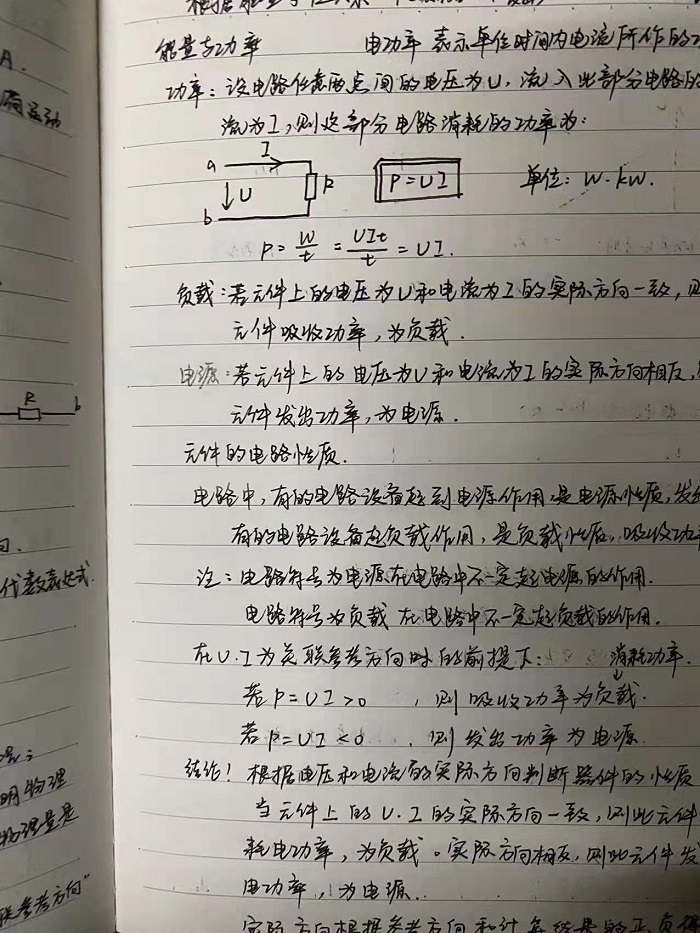 A.
能量与功率 电功率 表示单位时间内电流所作的
功率：设电路任意两点间的电压为U，流入此部分电路的
流为I，则这部分电路消耗的功率为：
a I
U R P=UI 单位：W.kW.
b
P=W/t=UIt/t=UI.
负载：若元件上的电压为U和电流为I的实际方向一致，则
元件吸收功率，为负载.
电源：若元件上的电压为U和电流为I的实际方向相反，
R b
元件发出功率，为电源.
元件的电路性质.
电路中，有的电路设备起到电源作用，是电源性质，发
有的电路设备起负载作用，是负载性质，吸收功
代数表达式.
注：电路符号为电源在电路中不一定起电源的作用.
电路符号为负载在电路中不一定起负载的作用.
在U.I为关联参考方向时的前提下： 消耗功率.
若P=UI>0，则吸收功率为负载.
若P=UI<0，则发出功率为电源
明物理
物理量是
联参考方向"
结论！根据电压和电流的实际方向判断器件的性质
当元件上的U.I的实际方向一致，则此元件
耗电功率，为负载。实际方向相反，则此元件发
电功率，为电源.
实际方向根据参考方向和计算结果的正负